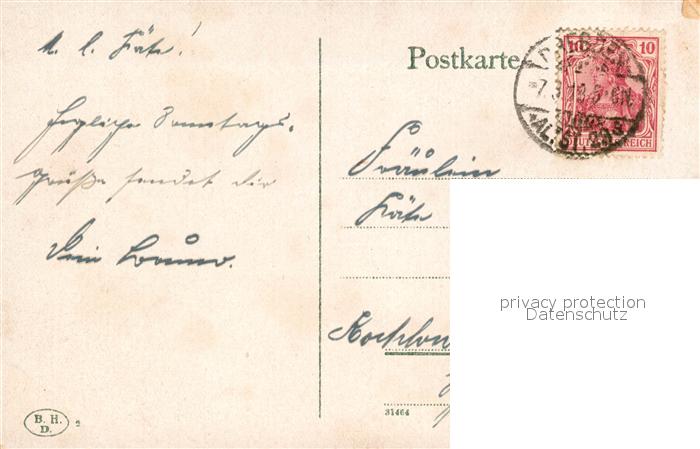 M. l. Käte!
Herzliche Sonntags-
grüße sendet dir
Dein Bruno.
B. H.
D.
2
Postkarte
10 10
DRESDEN
ALTST. 29
REICH
Fräulein
Käte
31464
privacy protection
Datenschutz